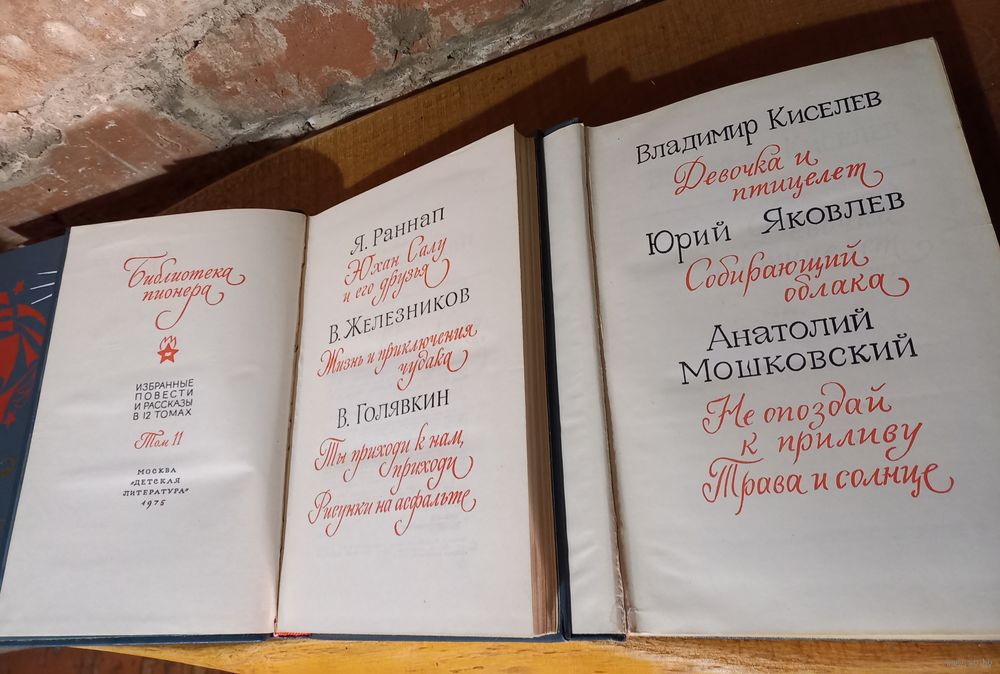 Библиотека
пионера
ИЗБРАННЫЕ
ПОВЕСТИ
И РАССКАЗЫ
В 12 ТОМАХ
Том 11
МОСКВА
"ДЕТСКАЯ
ЛИТЕРАТУРА"
1975
Я. Раннап
Юхан Салу
и его друзья
В. Железников
Жизнь и приключения
чудака
В. Голявкин
Ты приходи к нам,
приходи
Рисунки на асфальте
Владимир Киселев
Девочка и
птицелет
Юрий Яковлев
Собирающий
облака
Анатолий
Мошковский
Не опоздай
к приливу
Трава и солнце